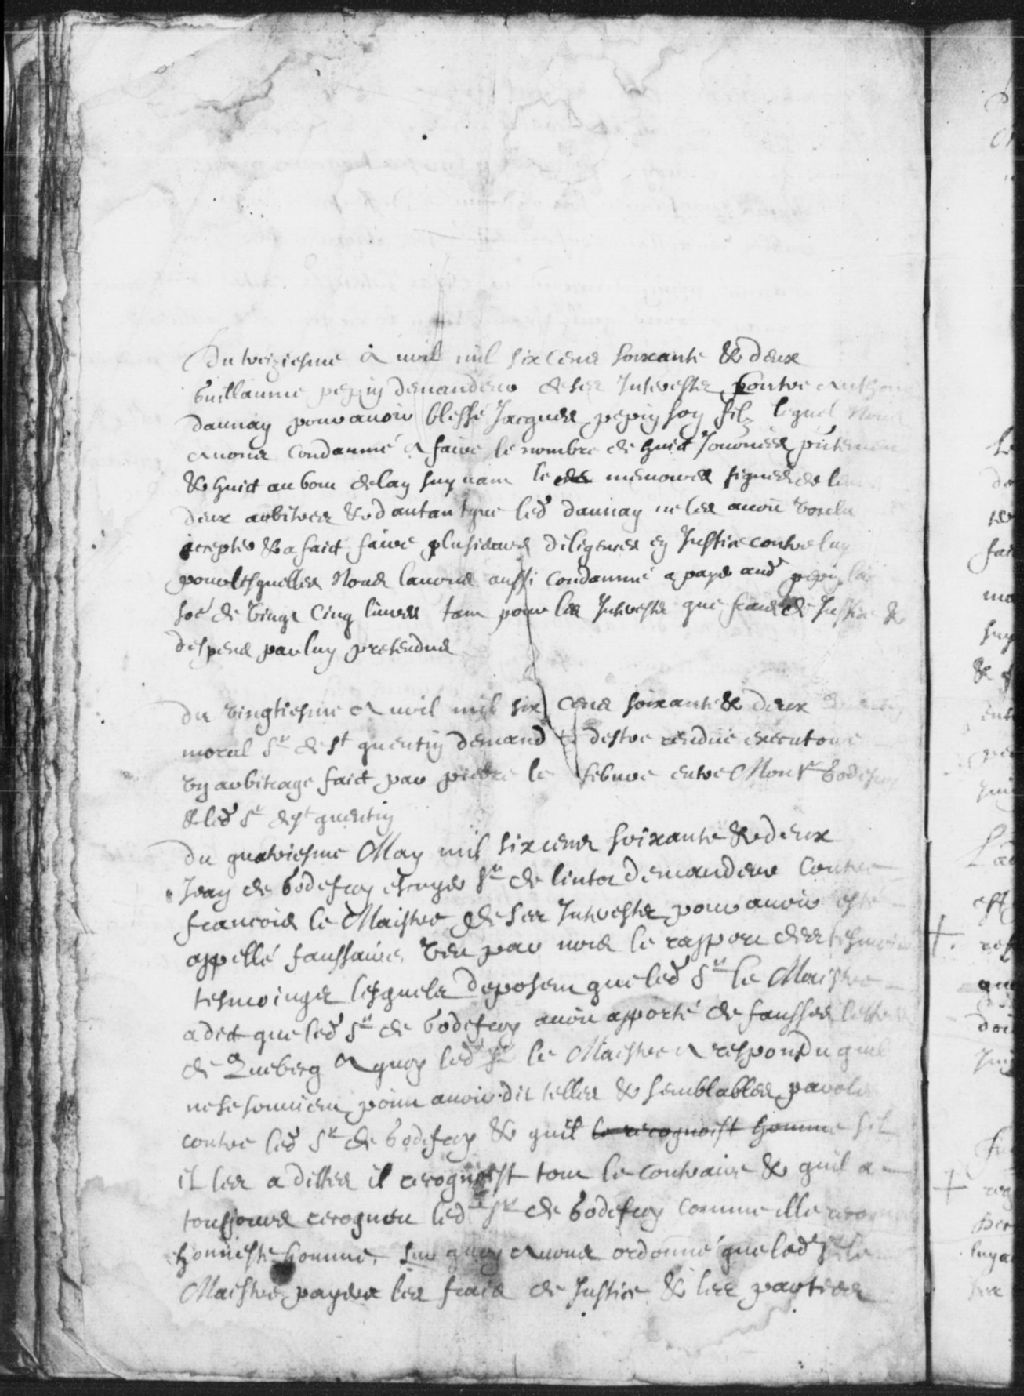 Du treiziesme Avril mil six cens soixante & deux
Guillaume pepin demandeur & ses Interestz contre Anthoi
Daunay pour avoir blessé Jacques pepin son filz lequel Nou
Avons condamné A faire le nombre de huict Journées
& huict au bout delan suyvant le memoires signé de
deux arbitres & d'autant que led daunay ne les avoit voulu
accepter & a faict faire plusieurs diligences en Justice contre luy
pour lesquelles Nous lavons aussi condamné a payer aud pepin la
soe de vingt cinq livres tam pour les Interestz que frais de Justice &
despens par luy pretendus
du vingtiesme Avril mil six cens soixante & deux
moral Sr de St quentin demand destre rendüe executoire
un arbitrage faict par pierre le febure entre Monsr Godefroy
& led Sr de St quentin
du quatriesme May mil six cens soixante & deux
Jean de Godefroy escuyer Sr de lintot demandeur contre
francois le Maistre de ses Interestz pour avoir esté
appellé faussaire Veu par nous le rapport des tesmoins
tesmoinges lesquels deposent que led Sr le Maistre
a dict que led Sr de Godefroy avoit apporté de fausses lettres
de Quebecq A quoy led Sr le Maistre A respondu quil
ne se souvient point avoir dit telles & semblables parole
contre led Sr de Godefroy & quil le recognoist homme sil
il les a dittes il recognoist tout le contraire & quil a
tousjours recognu led Sr de Godefroy comme ille
honneste homme, sur quoy Avons ordonné que led Sr le
Maistre payera les frais de Justice & les parties